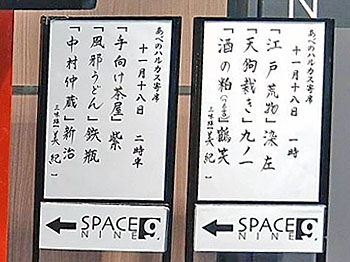 あべのハルカス寄席
十一月十八日　一時
「江戸荒物」染左
「天狗裁き」九ノ一
「酒の粕」鶴笑
三味線（美紀）
SPACE
NINE 9
あべのハルカス寄席
十一月十八日　二時半
「手向け茶屋」紫
「風邪うどん」鉄瓶
「中村仲蔵」新治
三味線（美紀）
SPACE
NINE 9